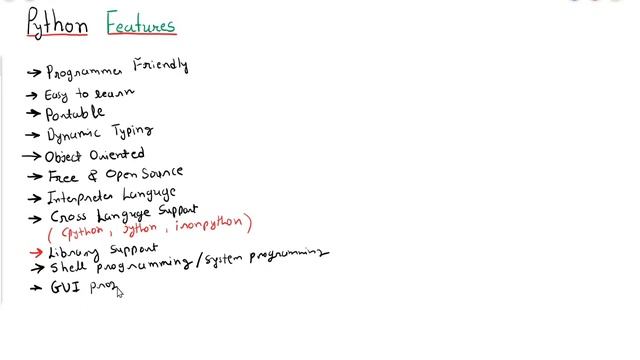 Python Features
→ Programmer Friendly
→ Easy to learn
→ Portable
→ Dynamic Typing
→ Object Oriented
→ Free & Open Source
→ Interpreter Languge
→ Cross Languge Support
( cpython, jython, ironpython )
→ Library Support
→ Shell programming / System programming
→ GUI prog